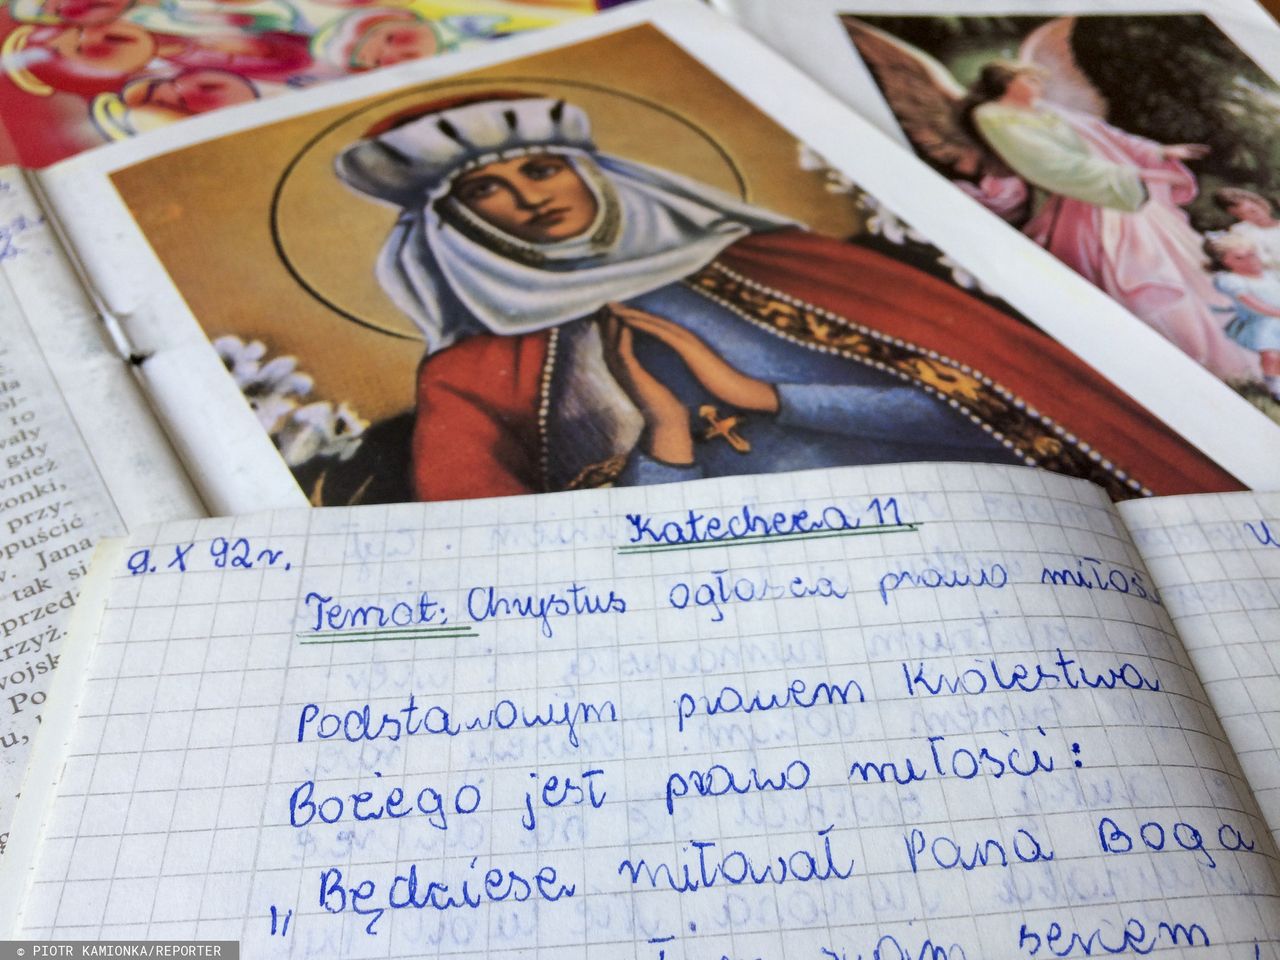 ły
10
wały
gdy
wnież
zonki,
przy-
puścić
w. Jana
tak si
przed
rzyż.
wojsk
Po
u,
9. X 92r.
Katecheza 11
Temat: Chrystus ogłasza prawo miłoś
Podstawowym prawem Królestwa
Bożego jest prawo miłości:
„Będziesz miłował Pana Boga
swoim sercem,
© PIOTR KAMIONKA/REPORTER